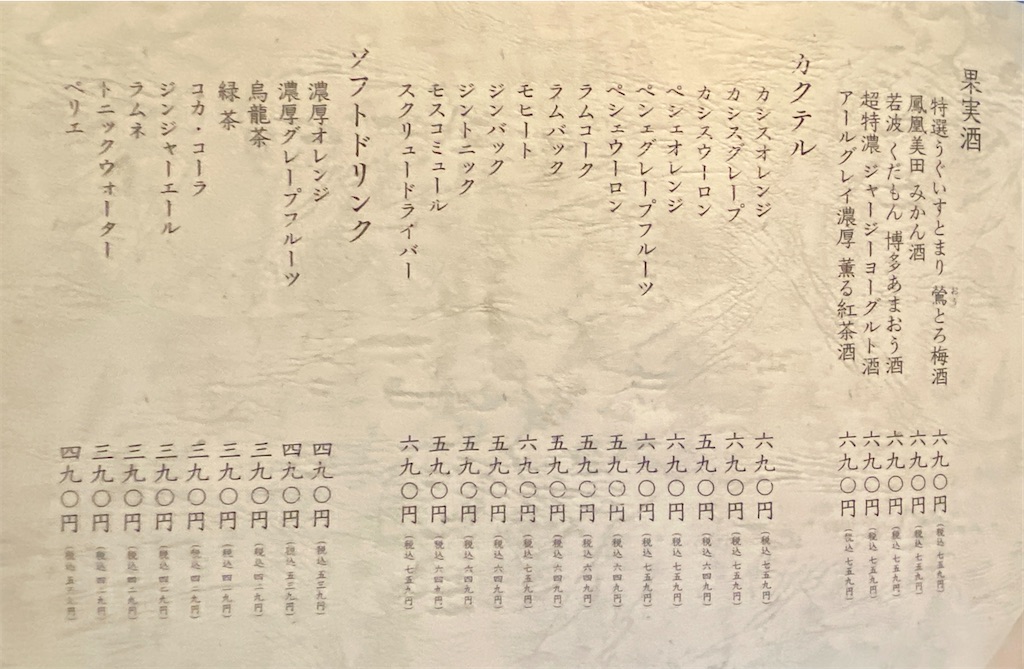 果実酒
特選うぐいすとまり 鶯とろ梅酒 六九〇円(税込 七五九円)
おう
鳳凰美田 みかん酒 六九〇円(税込 七五九円)
若波 くだもん 博多あまおう酒 六九〇円(税込 七五九円)
超特濃 ジャージーヨーグルト酒 六九〇円(税込 七五九円)
アールグレイ濃厚 薫る紅茶酒 六九〇円(税込 七五九円)
カクテル
カシスオレンジ 六九〇円(税込 七五九円)
カシスグレープ 六九〇円(税込 七五九円)
カシスウーロン 五九〇円(税込 六四九円)
ペシェオレンジ 六九〇円(税込 七五九円)
ペシェグレープフルーツ 六九〇円(税込 七五九円)
ペシェウーロン 五九〇円(税込 六四九円)
ラムコーク 五九〇円(税込 六四九円)
ラムバック 五九〇円(税込 六四九円)
モヒート 六九〇円(税込 七五九円)
ジンバック 五九〇円(税込 六四九円)
ジントニック 五九〇円(税込 六四九円)
モスコミュール 五九〇円(税込 六四九円)
スクリュードライバー 六九〇円(税込 七五九円)
ソフトドリンク
濃厚オレンジ 四九〇円(税込 五三九円)
濃厚グレープフルーツ 四九〇円(税込 五三九円)
烏龍茶 三九〇円(税込 四二九円)
緑茶 三九〇円(税込 四二九円)
コカ・コーラ 三九〇円(税込 四二九円)
ジンジャーエール 三九〇円(税込 四二九円)
ラムネ 三九〇円(税込 四二九円)
トニックウォーター 三九〇円(税込 四二九円)
ペリエ 四九〇円(税込 五三九円)